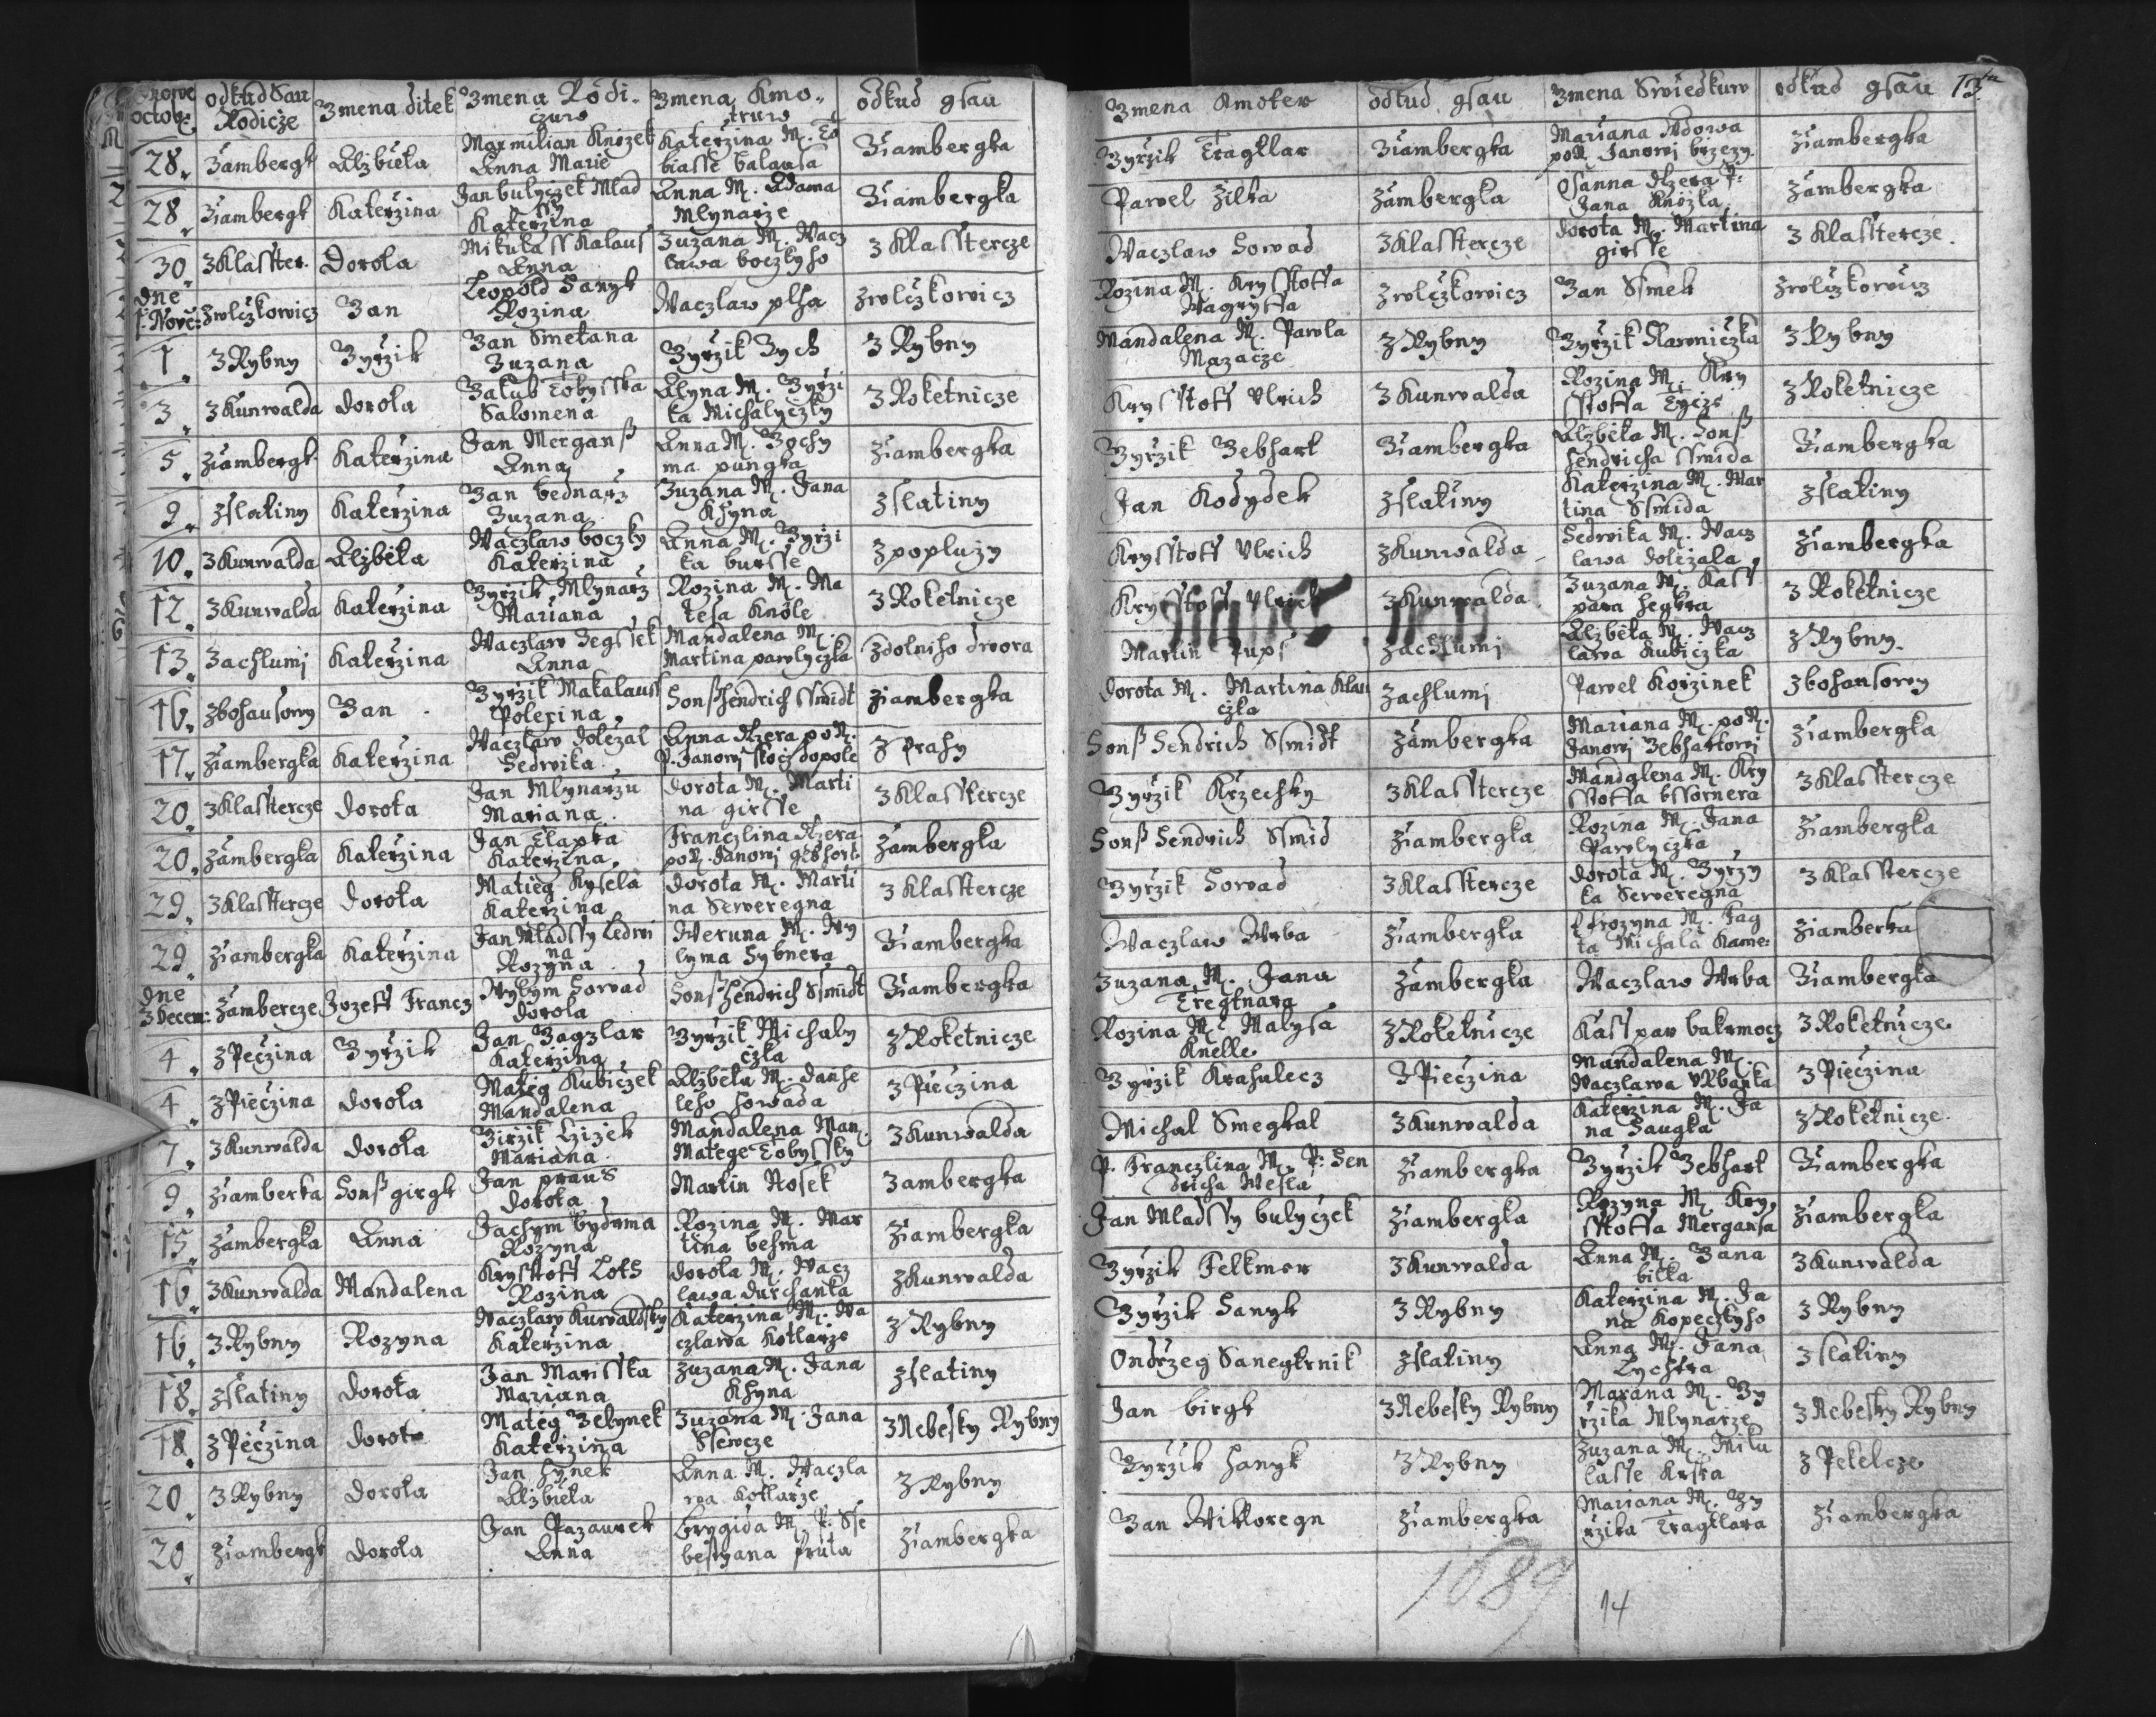 octob: odkud sau Rodicze Jmena ditek Jmena Rodi- czuw Jmena Kmo- truw odkud gsau
28. Ziambergk Elzbieta Maxmilian Knizek Anna Marie Katerzina M. To biasse balausa Ziambergka
28. Ziambergk Katerzina Jan bulyczek Mlad ssy Katerzina Anna M. Adama Mlynarze Ziambergka
30. z Klasster. Dorota Mikulass Kalaus Anna Zuzana M. Wacz lawa boczkyho z Klasstercze
dne 1. Nove: z wlczkowicz Jan Leopold Hanyk Rozina Waczlaw plha z wlczkowicz
1. z Rybny Jyrzik Jan Smetana Zuzana Jyrzik Zych z Rybny
3. z Kunwalda dorota Jakub Tobysska Salomena Alyna M. Jyrzi ka Michalyczky z Roketnicze
5. ziambergk Katerzina Jan Merganß Anna Anna M. Jochy ma pungka ziambergka
9. z slatiny Katerzina Jan bednarz Zuzana Zuzana M. Jana Khyna z slatiny
10. z Kunwalda Elzbeta Waczlaw boczky Katerzina Anna M. Jyrzi ka bursse z popluzy
12. z Kunwalda Katerzina Jyrzik Mlynarz Mariana Rozina M. Ma teja Knöle z Roketnicze
13. zachlumj Katerzina Waczlaw Jegssek Anna Mandalena M. Martina pawlyczka z dolniho dwora
16. z bohausowy Jan Jyrzik Makalauss Polexina Honß hendrich ssmidt ziambergka
17. ziambergka Katerzina Waczlaw dolezal Hedwika Anna dczera po N. P. Janowj z prahy
20. z Klasstercze dorota Jan Mlynarzu Mariana dorota M. Marti na girsse z Klasstercze
20. ziambergka Katerzina Jan Tlapka Katerzina Franczlina dczera po N. Janowj gebhort ziambergka
29. z Klasstercze dorota Matieg Kysela Katerzina dorota M. Marti na Seweregna z Klasstercze
29. ziambergka Katerzina Jan Mladssy Ledwi na Rozyna Weruna M. Wy lyma Hybnera Ziambergka
dne 3 Decem: zambercze Jozeff Francz Wylym Howad dorota Honß hendrich Ssmidt Ziambergka
4. z Peczina Jyrzik Jan Zagzlar Katerzina Jyrzik Michaly czka z Roketnicze
4. z Pieczina dorota Mateg Kubiczek Mandalena Elzbeta M. danhe leho howada z Pieczina
7. z Kunwalda dorota Jirzik Czizek Mariana Mandalena Man: Matege Tobyssky z Kunwalda
9. ziamberka Honß girgk Jan praus dorota Martin Nosek zambergka
15. zambergka Anna Jachym bydrma Rozyna Rozina M. Mar tina behma ziambergka
16. z Kunwalda Mandalena Krysstoff Loth Rozina dorota M. Wacz lawa durchanka z Kunwalda
16. z Rybny Rozyna Waczlaw Kunwaldsky Katerzina Katerzina M. Wa czlawa Kotlarze z Rybny
18. z slatiny dorota Jan Marisska Mariana zuzana M. Jana Khyna z slatiny
18. z Peczina dorota Mateg Zelynek Katerzina Zuzana M. Jana Ssewcze z Nebesky Rybny
20. z Rybny dorota Jan hynek Elzbieta Anna M. Waczla wa Kotlarze z Rybny
20. ziambergk dorota Jan Pazaurek Anna brygida M. P. Sse bestyana fruta ziambergka
Jmena Kmoter odkud gsau Jmena Swiedkuw odkud gsau 13
Jyrzik Tragklar Ziambergka Mariana Wdowa po N. Janowj brzezy. ziambergka
Pawel Zilka zambergka Osanna dczera P: Jana Knizka zambergka
Waczlaw Howad z Klasstercze dorota M. Martina girsse z Klasstercze.
Rozina M. Krysstoffa Wagryffa z wlczkowicz Jan Ssmek z wlczkowicz
Mandalena M. Pawla Mazacze z Rybny Jyrzik Slawniczka z Rybny
Krysstoff Vlrich z Kunwalda Rozina M. Kry sstoffa Tycze z Roketnicze
Jyrzik Jebhart Ziambergka Elzbeta M. Honß hendricha ssmida Ziambergka
Jan Kodydek z slatiny Katerzina M. Mar tina Ssmida z slatiny
Krysstoff Vlrich z Kunwalda Hedwika M. Wacz lawa dolezala ziambergka
Krysstoff Vlrich z Kunwalda Zuzana M. Kass para hegkra z Roketnicze
Martin Pups zachlumj Elzbeta M. Wacz lawa Kubiczka z Rybny.
dorota M. Martina Klau czka zachlumj Pawel Korzinek z bohausowy
Honß Hendrich Ssmidt zambergka Mariana M. po N. Janowj Jebhartowj ziambergka
Jyrzik Krzechky z Klasstercze Mandalena M. Kry sstoffa bssornera z Klasstercze
Honß Hendrich Ssmid ziambergka Rozina M. Jana Pawlyczka ziambergka
Jyrzik Howad z Klasstercze dorota M. Jyrzy ka Seweregna z Klasstercze
Waczlaw Wrba ziambergka Efrozyna M. Jag ta Michala Kame: ziamberka
Zuzana M. Jana Tregknara zambergka Waczlaw Wrba Ziambergka
Rozina M. Matysa Knelle z Roketnicze Kasspar bakrmocz z Roketnicze
Jyrzik Krahulecz z Pieczina Mandalena M. Waczlawa Vrbanka z Pieczina
Michal Smegkal z Kunwalda Katerzina M. Ja na Haugka z Roketnicze.
P. Franczlina M. P: Hen dricha Wesla ziambergka Jyrzik Jebhart Ziambergka
Jan Mladssy bulyczek ziambergka Rozyna M. Kry sstoffa Mergansa ziambergka
Jyrzik Felkmer z Kunwalda Anna M. Jana bitka z Kunwalda
Jyrzik Hanyk z Rybny Katerzina M. Ja na Kopeczkyho z Rybny
Ondrzeg Hanegkrnik z slatiny Anna M. Jana Lychtra z slatiny
Jan birgk z Nebesky Rybny Marana M. Jy rzika Mlynarze z Nebesky Rybny
Jyrzik hanyk z Rybny zuzana M. Miku lasse Krska z Pekelcze
Jan Wiktoregn ziambergka Mariana M. Jy rzika Tragklara ziambergka
1689 14